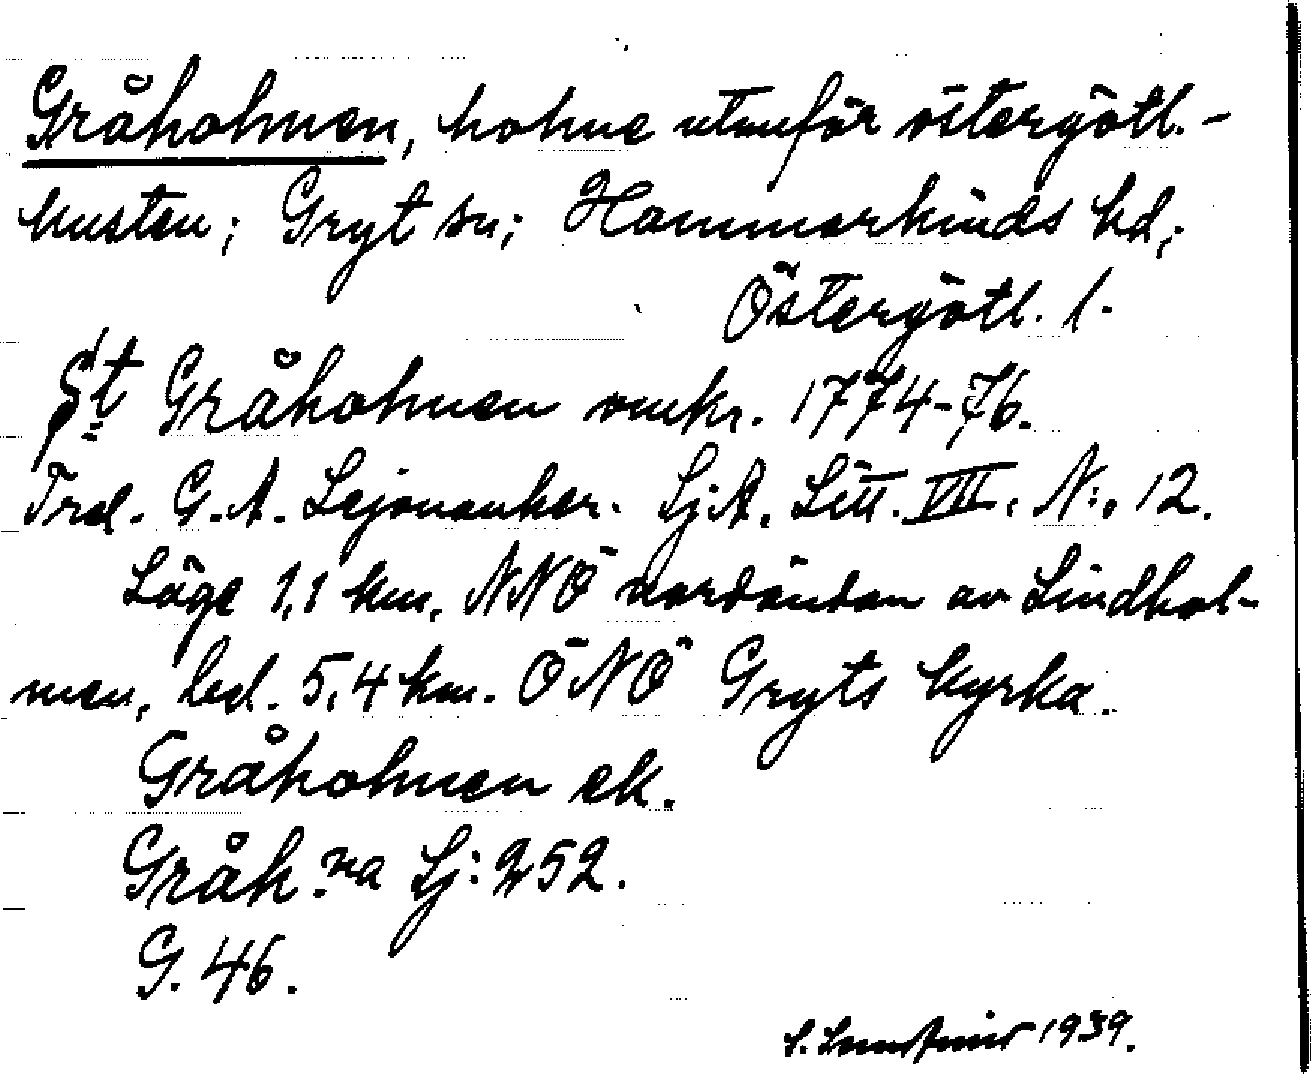 Gråholmen, holme utanför östergötl.-
kusten; Gryt sn; Hammarkinds hd;
Östergötl. l.
St Gråholmen omkr. 1774-76.
Frd. G.A. Lejonanker. Sj.A. Litt. VIII. N:o 12.
Läge 1,1 km. NNÖ nordändan av Lindhol-
men, bel. 5,4 km. ÖNÖ Gryts kyrka.
Gråholmen ek.
Gråh.na Sj: 252.
G. 46.
1939.